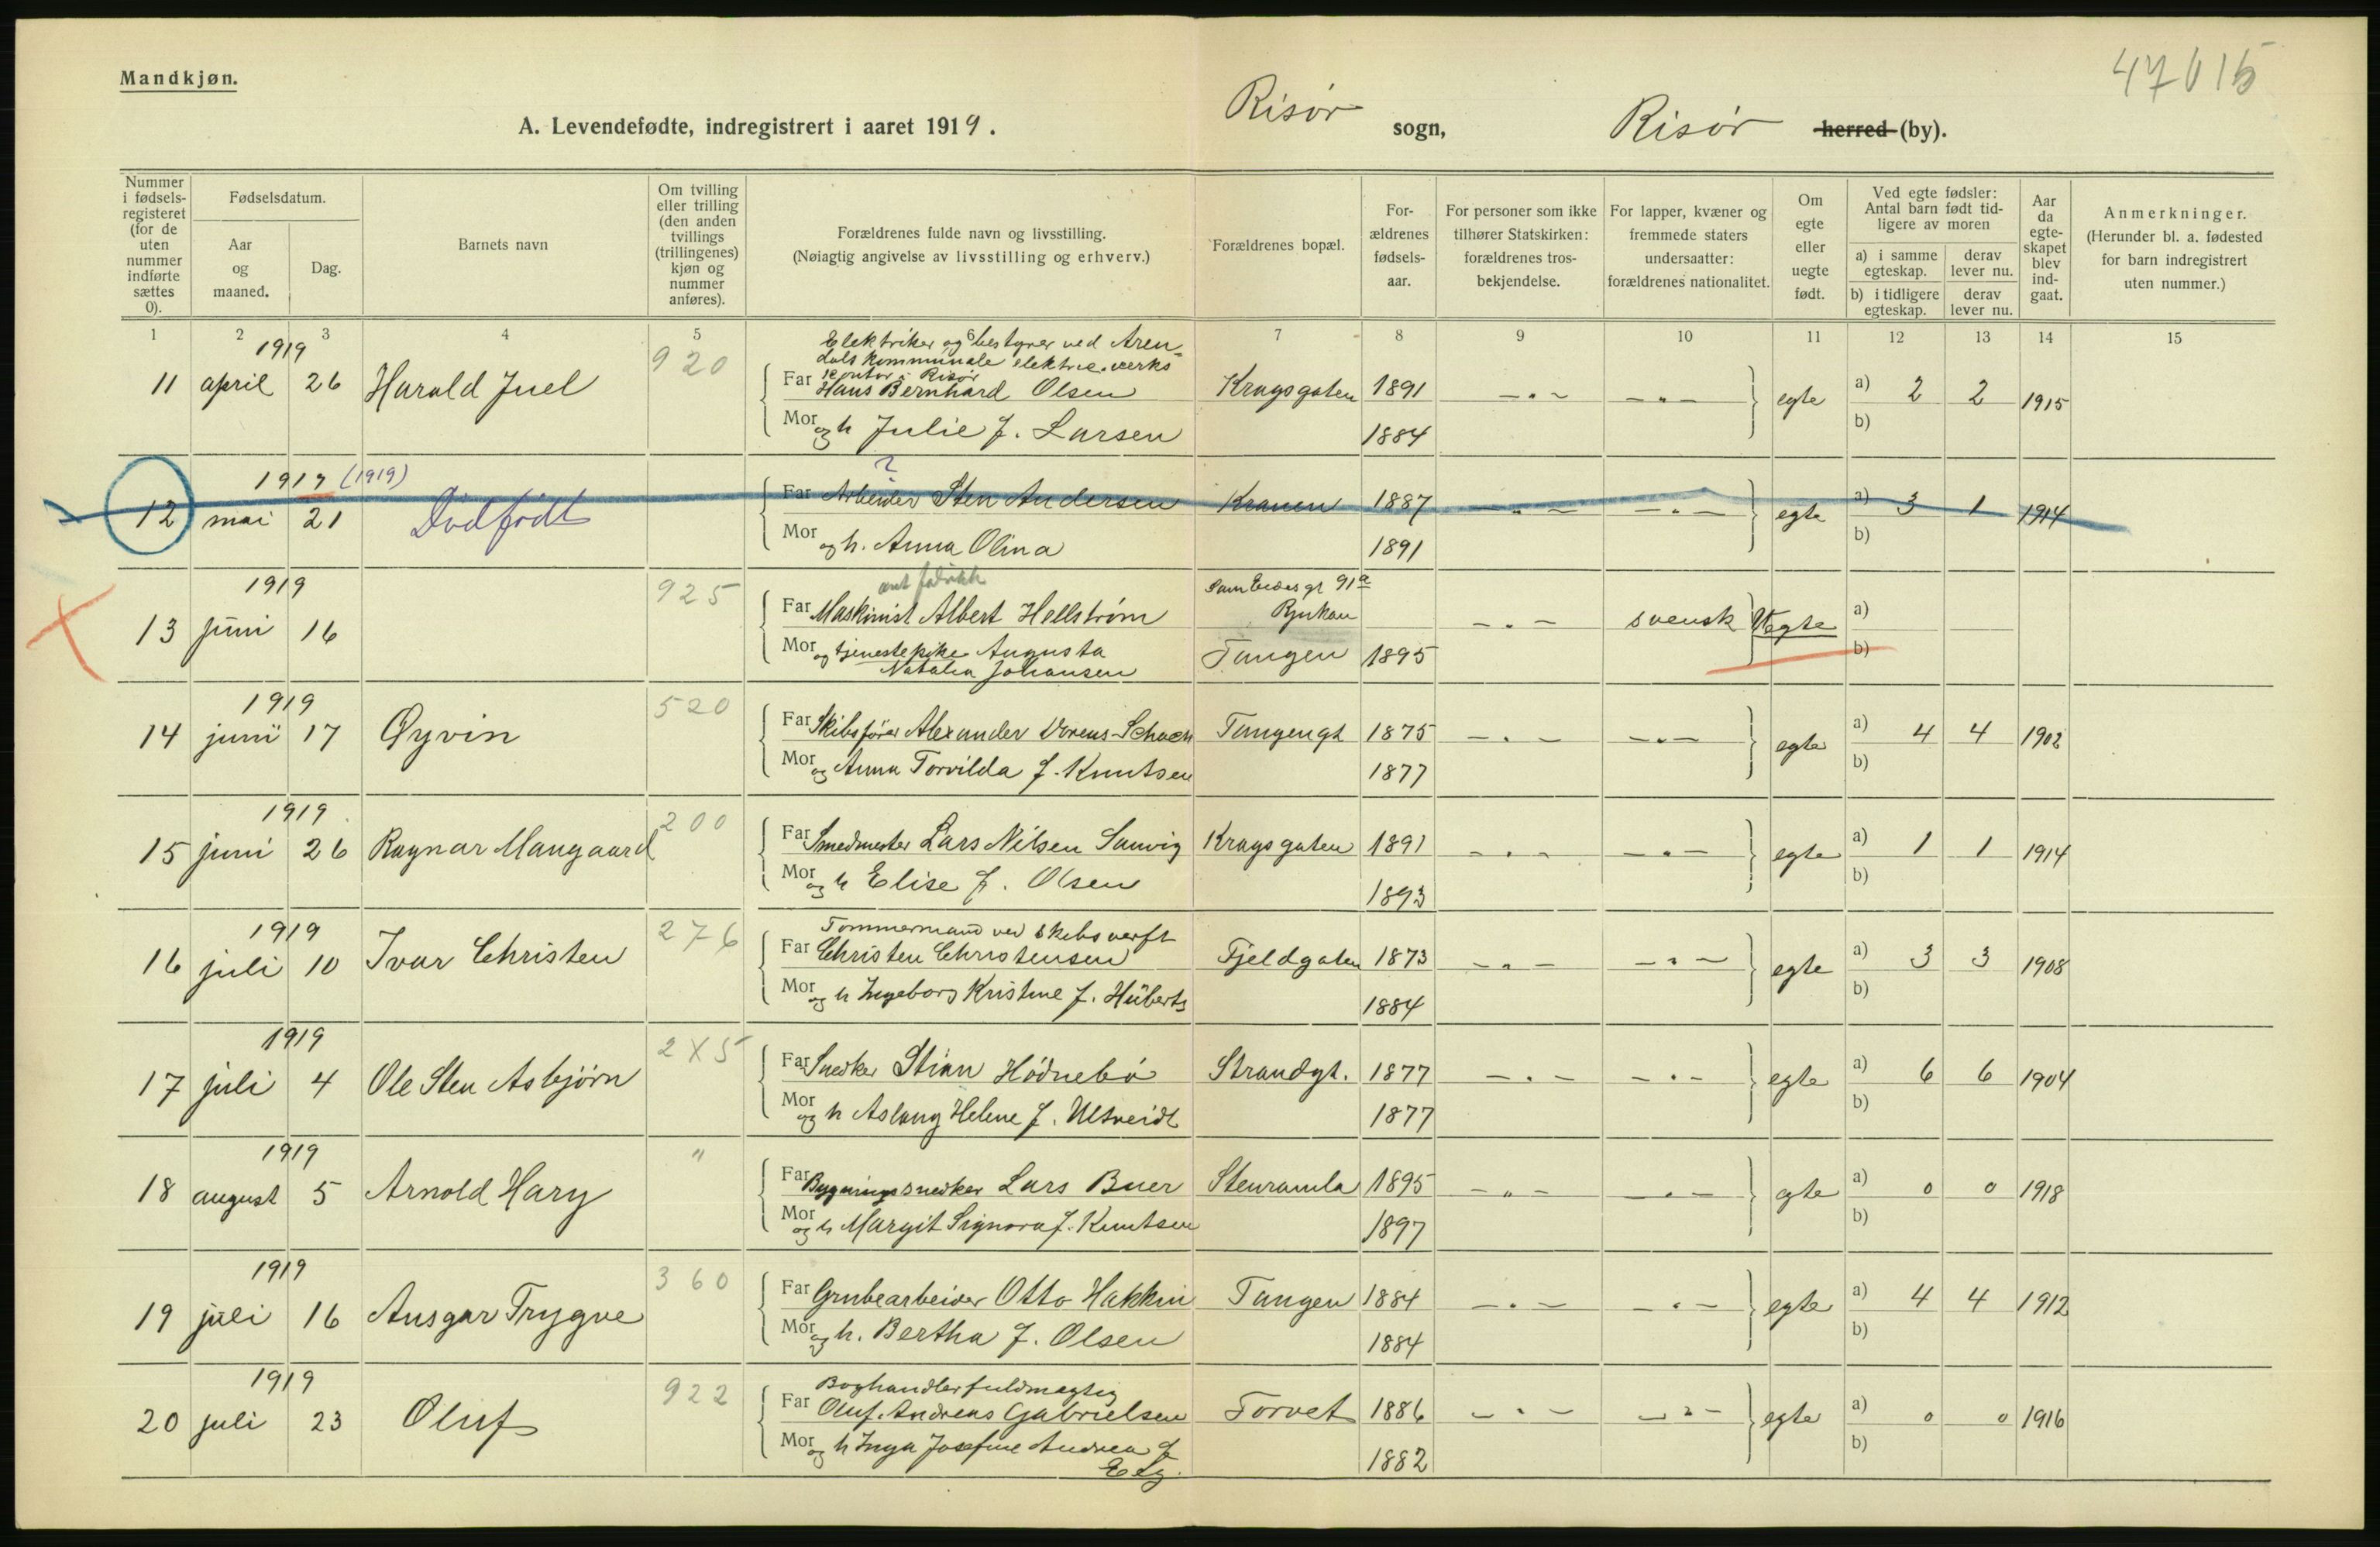 Mandkjøn.
47015
A. Levendefødte, indregistrert i aaret 1919. Risør sogn, Risør herred (by).
Nummer i fødsels-registeret (for de uten nummer indførte sættes 0).
Fødselsdatum.
Aar og maaned.
Dag.
Barnets navn
Om tvilling eller trilling (den anden tvillings (trillingenes) kjøn og nummer anføres).
Forældrenes fulde navn og livsstilling.
(Nøiagtig angivelse av livsstilling og erhverv.)
Forældrenes bopæl.
For-ældrenes fødsels-aar.
For personer som ikke tilhører Statskirken: forældrenes tros-bekjendelse.
For lapper, kvæner og fremmede staters undersaatter: forældrenes nationalitet.
Om egte eller uegte født.
Ved egte fødsler: Antal barn født tid-ligere av moren
a) i samme egteskap. derav lever nu.
b) i tidligere egteskap. derav lever nu.
Aar da egte-skapet blev ind-gaat.
Anmerkninger.
(Herunder bl. a. fødested for barn indregistrert uten nummer.)
1 2 3 4 5 6 7 8 9 10 11 12 13 14 15
1919 920 Elektriker og bestyrer ved Aren-
dals kommunale elektric. verks
kontor i Risør
11 april 26 Harald Juel Far Hans Bernhard Olsen Kragsgaten 1891 — " — — " — egte a) 2 2 1915
Mor og h Julie f. Larsen 1884 b)
1919 (1919) ?
12 mai 21 Dødfødt Far Arbeider Sten Andersen Kranen 1887 — " — — " — egte a) 3 1 1914
Mor og h. Anna Olina 1891 b)
1919 925 Sam Eydes gt 91a
13 juni 16 Far Maskinist Albert Hellstrøm Rjukan — " — svensk Uegte a)
Mor og tjenestepike Augusta Tangen 1895 b)
Natalia Johansen
1919 520
14 juni 17 Øyvin Far Skibsfører Alexander Vorens-Schach Tangengt 1875 — " — — " — egte a) 4 4 1902
Mor og Anna Torvilda f. Knutsen 1877 b)
1919 200
15 juni 26 Ragnar Mangaard Far Smedmester Lars Nilsen Sanvig Kragsgaten 1891 — " — — " — egte a) 1 1 1914
Mor og h Elise f. Olsen 1893 b)
1919 276 Tømmermand ved skibsverft
16 juli 10 Ivar Christen Far Christen Christensen Fjeldgaten 1873 — " — — " — egte a) 3 3 1908
Mor og h Ingeborg Kristine f. Hüberts 1884 b)
1919 2X5
17 juli 4 Ole Sten Asbjørn Far Snedker Stian Hødnebø Strandgt. 1877 — " — — " — egte a) 6 6 1904
Mor og h Aslaug Helene f. Ultveidt 1877 b)
1919 "
18 august 5 Arnold Hary Far Bygningssnedker Lars Buer Stenramla 1895 — " — — " — egte a) 0 0 1918
Mor og h Margit Signora f. Knutsen 1897 b)
1919 360
19 juli 16 Ansgar Trygve Far Grubearbeider Otto Hakkin Tangen 1884 — " — — " — egte a) 4 4 1912
Mor og h. Bertha f. Olsen 1884 b)
1919 922 Boghandlerfuldmægtig
20 juli 23 Oluf Far Oluf Andreas Gabrielsen Torvet 1886 — " — — " — egte a) 0 0 1916
Mor og h Inga Josefine Andrea f 1882 b)